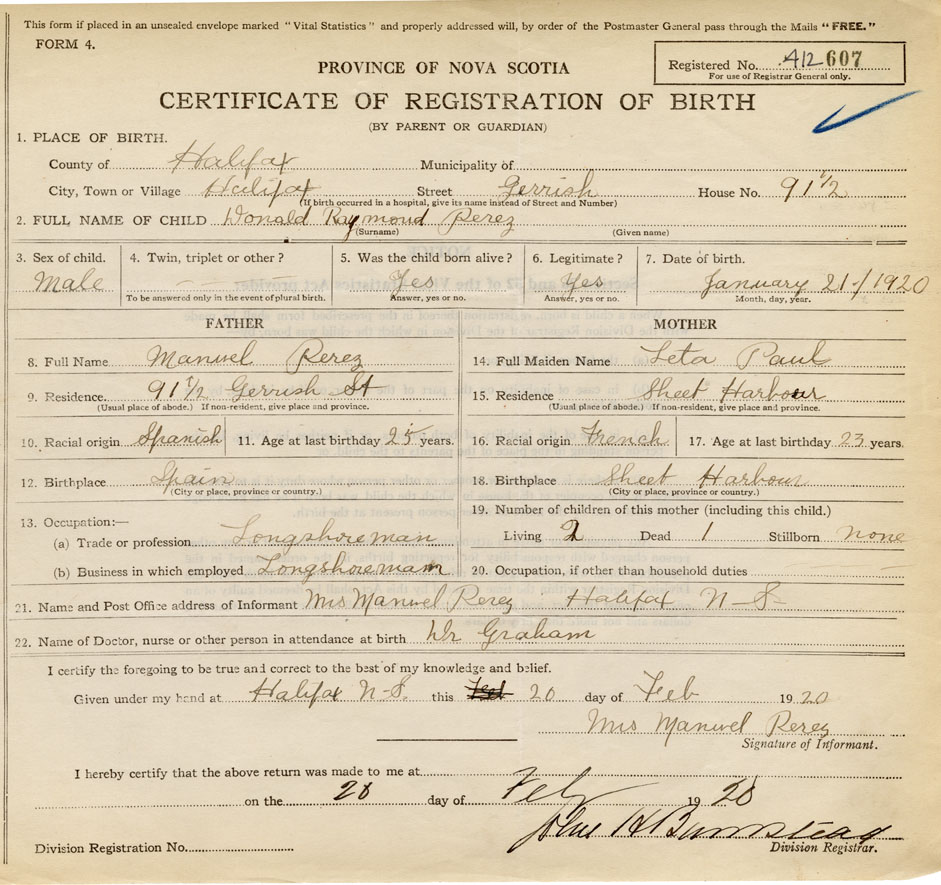 This form if placed in an unsealed envelope marked "Vital Statistics" and properly addressed will, by order of the Postmaster General pass through the Mails "FREE."
FORM 4.
Registered No. 412 607
For use of Registrar General only.
PROVINCE OF NOVA SCOTIA
CERTIFICATE OF REGISTRATION OF BIRTH
(BY PARENT OR GUARDIAN)
1. PLACE OF BIRTH.
County of Halifax Municipality of
City, Town or Village Halifax Street Gerrish House No. 91 1/2
(If birth occurred in a hospital, give its name instead of Street and Number)
2. FULL NAME OF CHILD Donald Raymond Perez
(Surname) (Given name)
3. Sex of child. 4. Twin, triplet or other? 5. Was the child born alive? 6. Legitimate? 7. Date of birth.
Male - - - Yes Yes January 21/1920
To be answered only in the event of plural birth. Answer, yes or no. Answer, yes or no. Month, day, year.
FATHER MOTHER
8. Full Name Manuel Perez 14. Full Maiden Name Leta Paul
9. Residence. 91 1/2 Gerrish St 15. Residence Sheet Harbour
(Usual place of abode.) If non-resident, give place and province. (Usual place of abode.) If non-resident, give place and province.
10. Racial origin Spanish 11. Age at last birthday 25 years. 16. Racial origin French 17. Age at last birthday 23 years.
12. Birthplace Spain 18. Birthplace Sheet Harbour
(City or place, province or country.) (City or place, province or country.)
13. Occupation:— 19. Number of children of this mother (including this child.)
(a) Trade or profession Longshoreman Living 2 Dead 1 Stillborn none
(b) Business in which employed Longshoreman 20. Occupation, if other than household duties
21. Name and Post Office address of Informant Mrs Manuel Perez Halifax N-S-
22. Name of Doctor, nurse or other person in attendance at birth Dr Graham
I certify the foregoing to be true and correct to the best of my knowledge and belief.
Given under my hand at Halifax N-S. this 20 day of Feb 1920
Mrs Manuel Perez
Signature of Informant.
I hereby certify that the above return was made to me at
on the 20 day of Feby 1920
John H Bumstead
Division Registration No. Division Registrar.